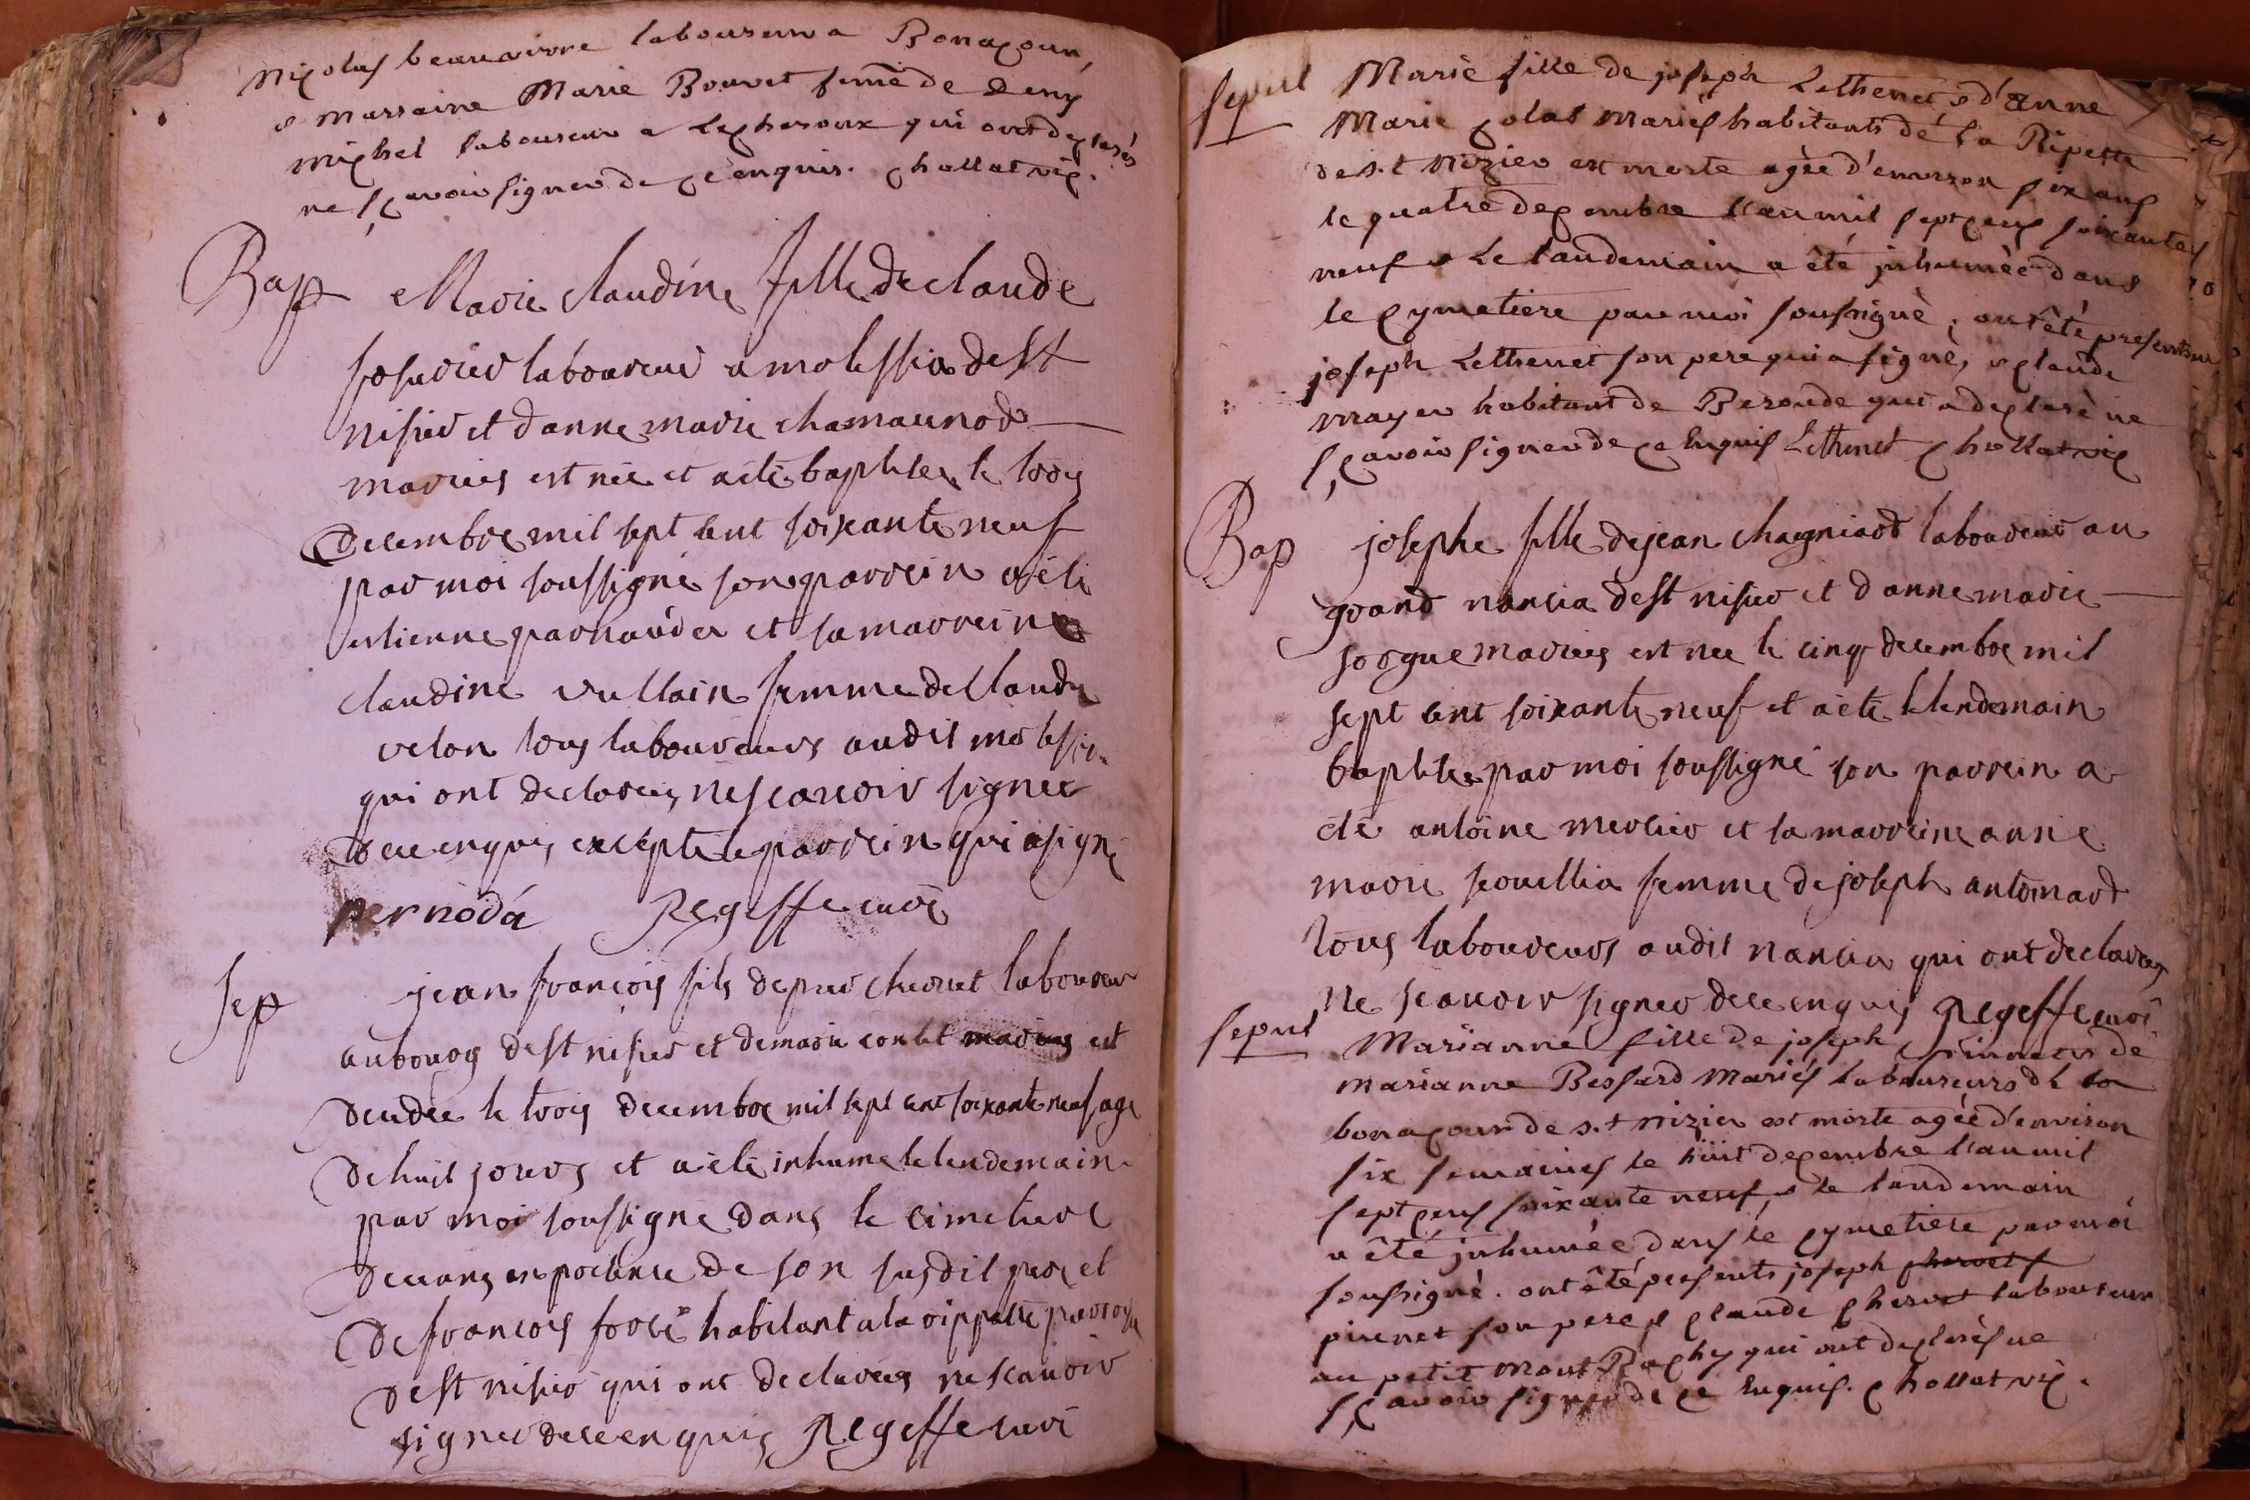 Nicolas beauvivre laboureur a Bonacour,
& marraine Marie Bouvet feme de Deny
Michel laboureur a Lecheroux qui ont declarés
ne sçavoir signer de ce enquis. Chollat vic.
Bap Marie claudine fille de claude
laboureur a molessia de st
nisier et d anne marie chamaunod
mariés est née et a été baptisée le trois
Decembre mil sept cent soixante neuf
par moi soussigné son parrein a été
estienne parnauda et sa marreine
claudine vullain femme de Claude
velon tous laboureurs audit molessia
qui ont declarés ne scavoir signer
de ce enquis excepté le parrein qui a signé
pernodá Regeffe curé
Sep jean françois fils de pier chervet laboureur
au bourg de st nisier et de marie mariés est
decedée le trois decembre mil sept cent soixante neuf agé
de huit jours et a été inhumé le lendemain
par moi soussigné dans le cimetiere
de ceans en presence de son susdit pere et
de françois foré habitant a la rippette parroisse
de st nisier qui ont declarés ne scavoir
signer de ce enquis Regeffe curé
sepul Marie fille de joseph Lethenet & d'Anne
Marie Colas Mariés habitants de la Ripette
de s.t Nizier est morte agée d'environ six ans
le quatre decembre l'an mil sept cens soixantes
neuf & le landemain a été inhumée dans
le cymetiere par moi sousigné, ont été presents
joseph Lethenet son pere qui a signé, & claude
vrayer habitant de Beroude qui a declaré ne
sçavoir signer de ce Enquis Lethenet Chollat vic
Bap josephe fille de jean chagniard laboureur au
grand nancia de st nisier et d anne marie
sorgue mariés est née le cinq decembre mil
sept cent soixante neuf et a été le lendemain
baptisée par moi soussigné son parrein a
été antoine mercier et sa marreine anne
marie femme de joseph antoinard
tous laboureurs audit nancia qui ont declarés
ne scavoir signer de ce enquis Regeffe curé
sepul Marianne fille de joseph de
Marianne Bessard Mariés laboureurs de
bonacour de s.t Nizier est morte agée d'environ
six semaines le huit decembre l'an mil
sept cens soixante neuf, & le landemain
a été inhumée dans le cymetiere par moi
sousigné. ont été presents joseph chervet
pirenet son pere & claude Chervet laboureur
au petit Mont Rachy qui ont declarés ne
sçavoir signer de ce Enquis. Chollat vic.